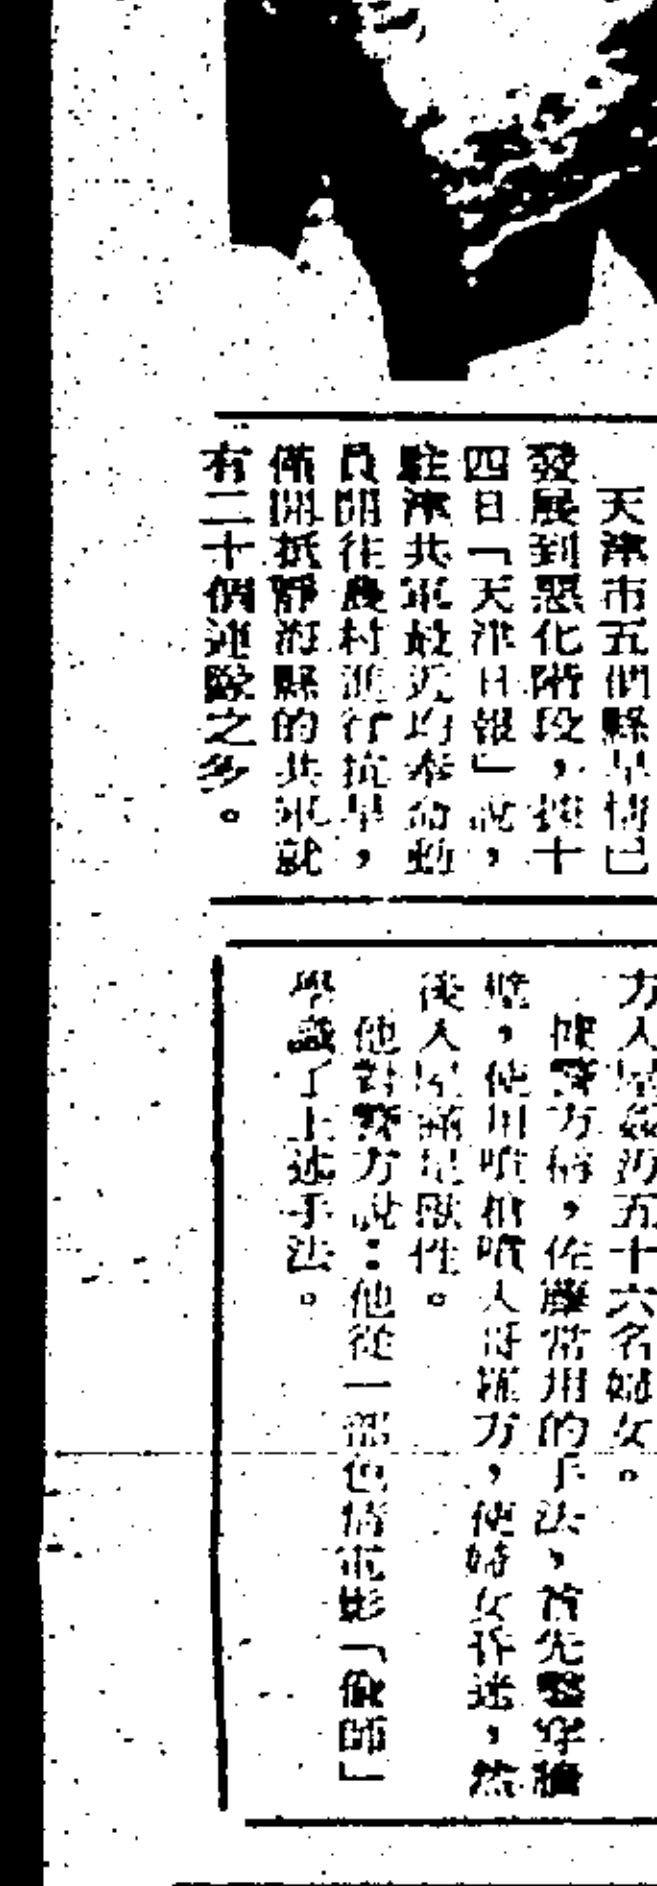 天津市五個縣旱情已
發展到惡化階段，據十
四日「天津日報」說，
駐津共軍最近均奉命動
員開往農村進行抗旱，
僅開抵靜海縣的共軍就
有二十個連隊之多。
方入屋姦污五十六名婦女。
據警方稱，佐藤常用的手法，首先鑿穿牆
壁，使用噴槍噴入哥羅方，使婦女昏迷，然
後入屋滿足獸性。
他對警方說：他從一部色情電影「 師」
學識了上述手法。